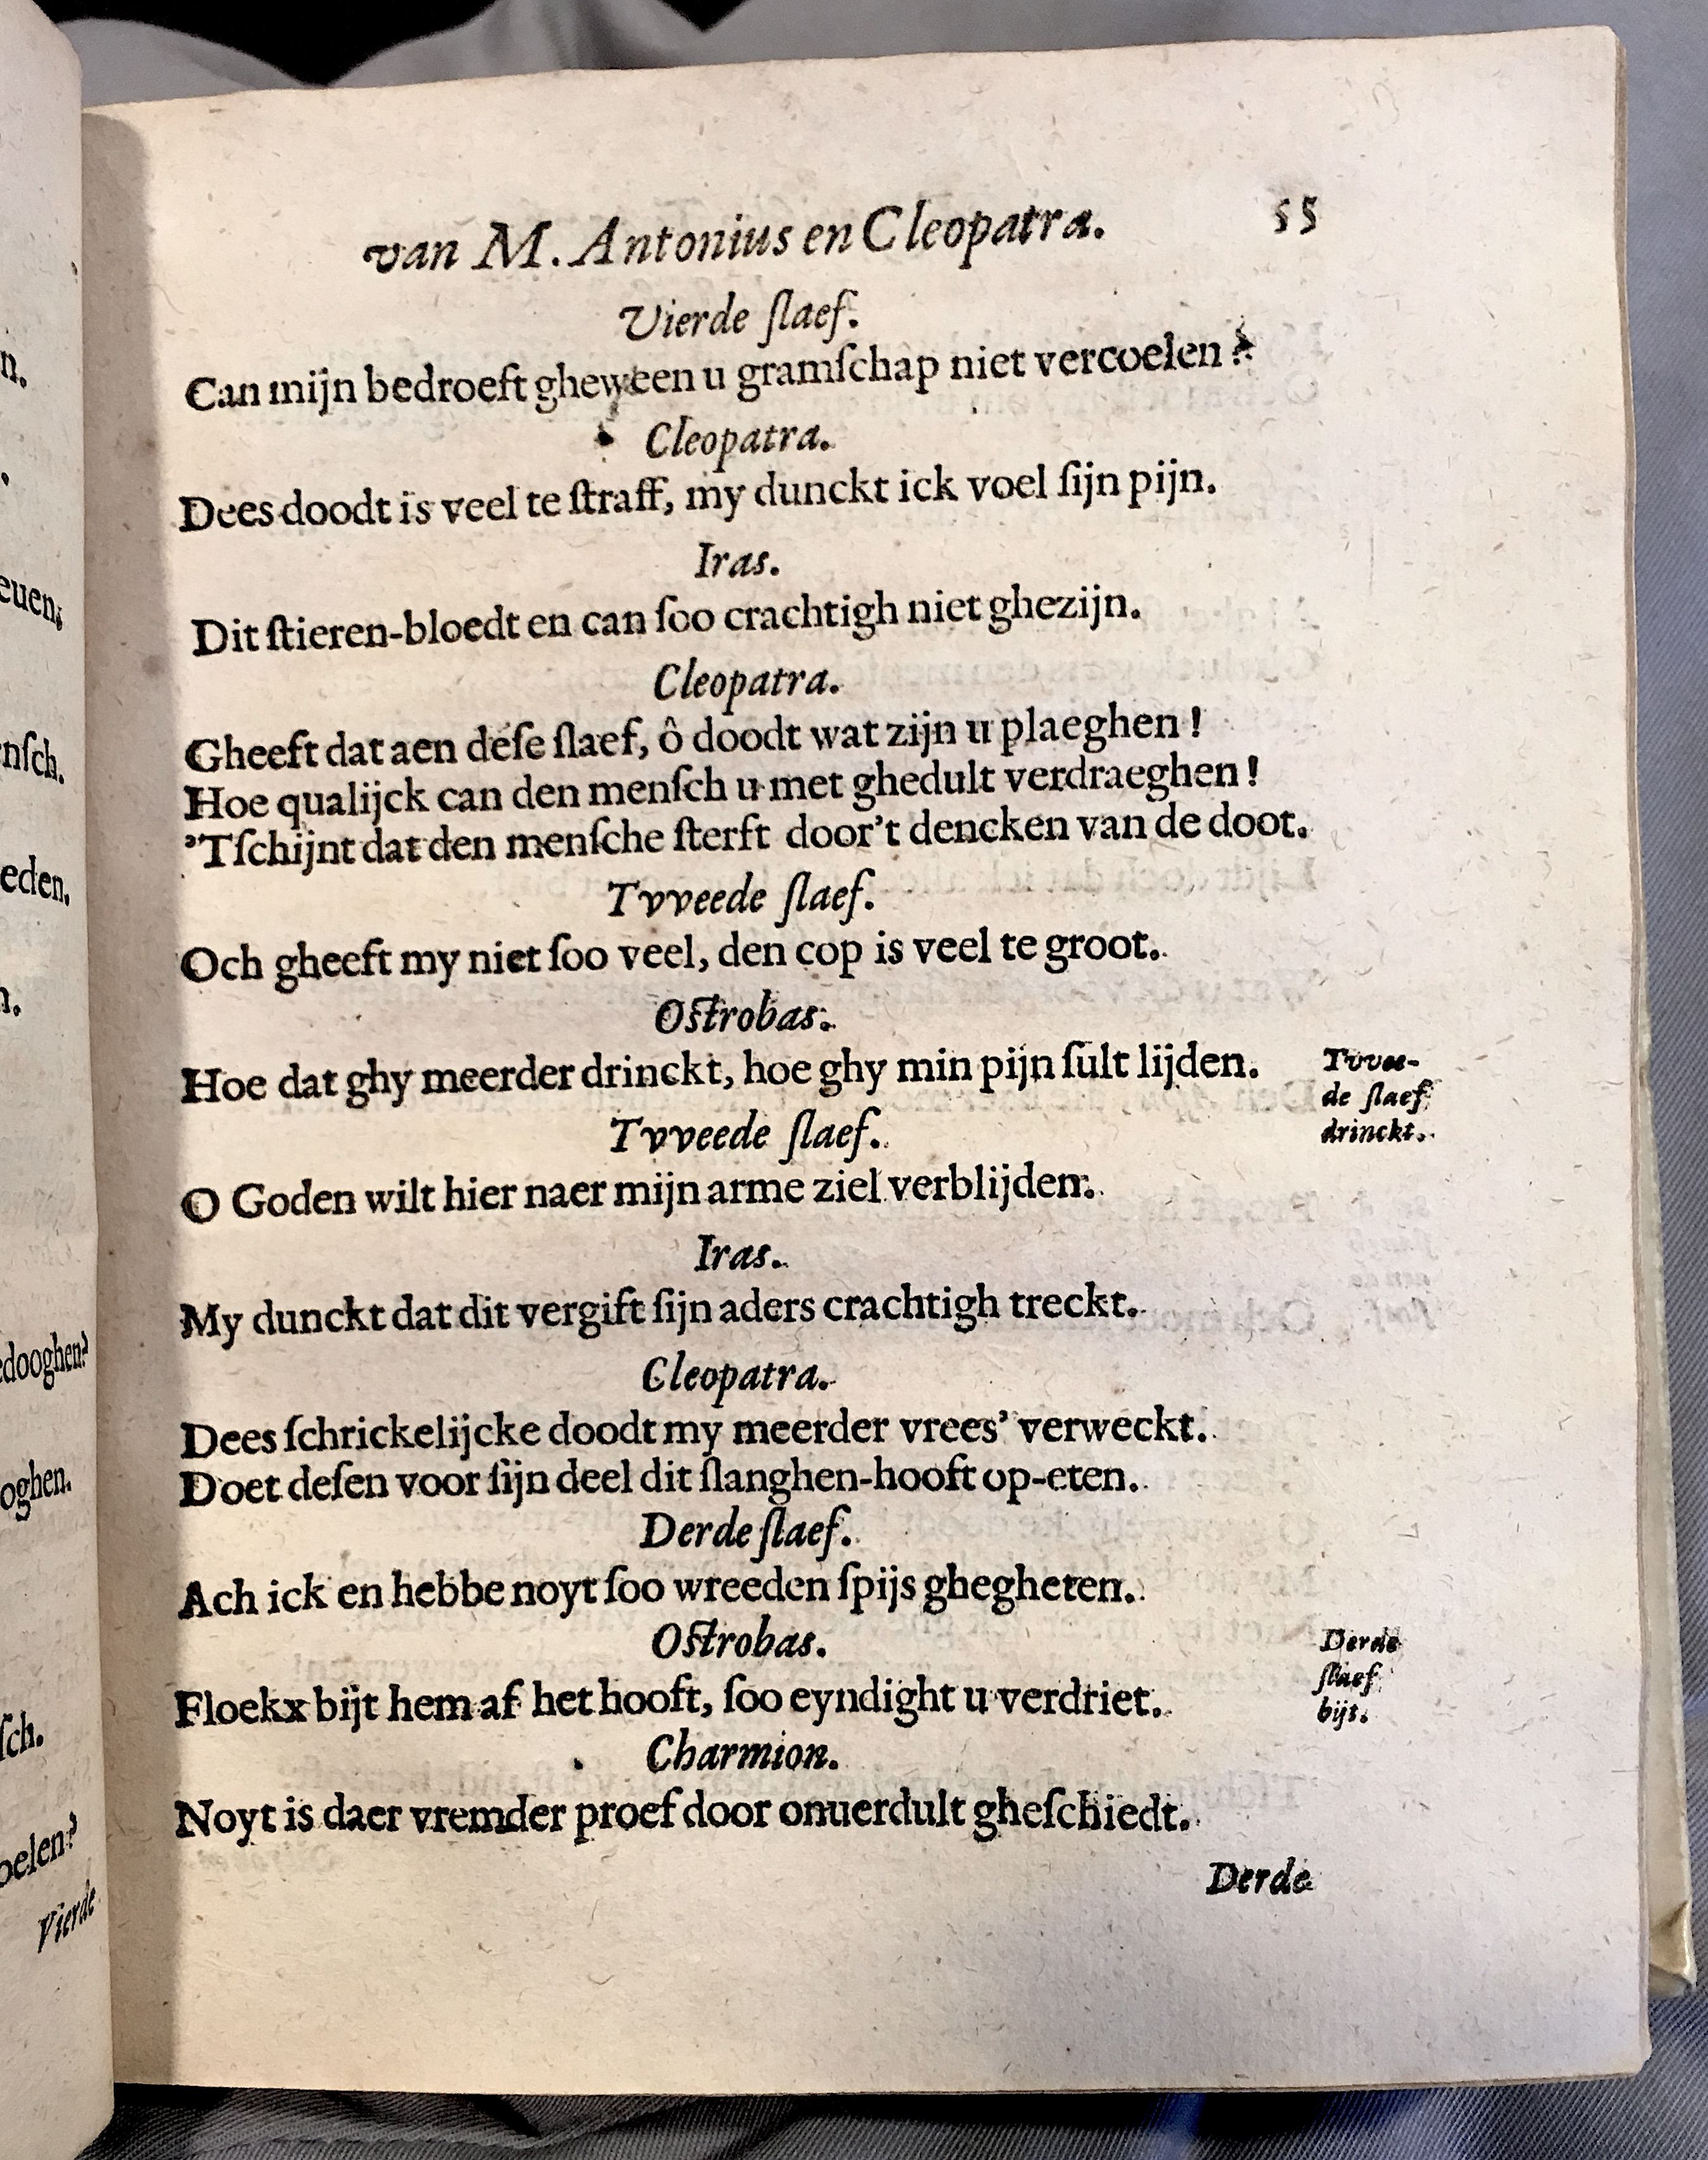 van M. Antonius en Cleopatra. 55
Vierde ſlaef.
Can mijn bedroeft gheween u gramſchap niet vercoelen?
Cleopatra.
Dees doodt is veel te ſtraff, my dunckt ick voel ſijn pijn.
Iras.
Dit ſtieren-bloedt en can ſoo crachtigh niet ghezijn.
Cleopatra.
Gheeft dat aen deſe ſlaef, ô doodt wat zijn u plaeghen!
Hoe qualijck can den menſch u met ghedult verdraeghen!
'Tſchijnt dat den menſche ſterft door't dencken van de doot.
Tvveede ſlaef.
Och gheeft my niet ſoo veel, den cop is veel te groot.
Oſtrobas.
Hoe dat ghy meerder drinckt, hoe ghy min pijn ſult lijden.
Tvvee-
de ſlaef
drinckt.
Tvveede ſlaef.
O Goden wilt hier naer mijn arme ziel verblijden.
Iras.
My dunckt dat dit vergift ſijn aders crachtigh treckt.
Cleopatra.
Dees ſchrickelijcke doodt my meerder vrees' verweckt.
Doet deſen voor ſijn deel dit ſlanghen-hooft op-eten.
Derde ſlaef.
Ach ick en hebbe noyt ſoo wreeden ſpijs ghegheten.
Oſtrobas.
Floekx bijt hem af het hooft, ſoo eyndight u verdriet.
Derde
ſlaef
bijt.
Charmion.
Noyt is daer vremder proef door onuerdult gheſchiedt.
Derde
n.
euen;
nſch.
eden.
n.
edooghen?
ooghen.
ſch.
oelen?
Vierde